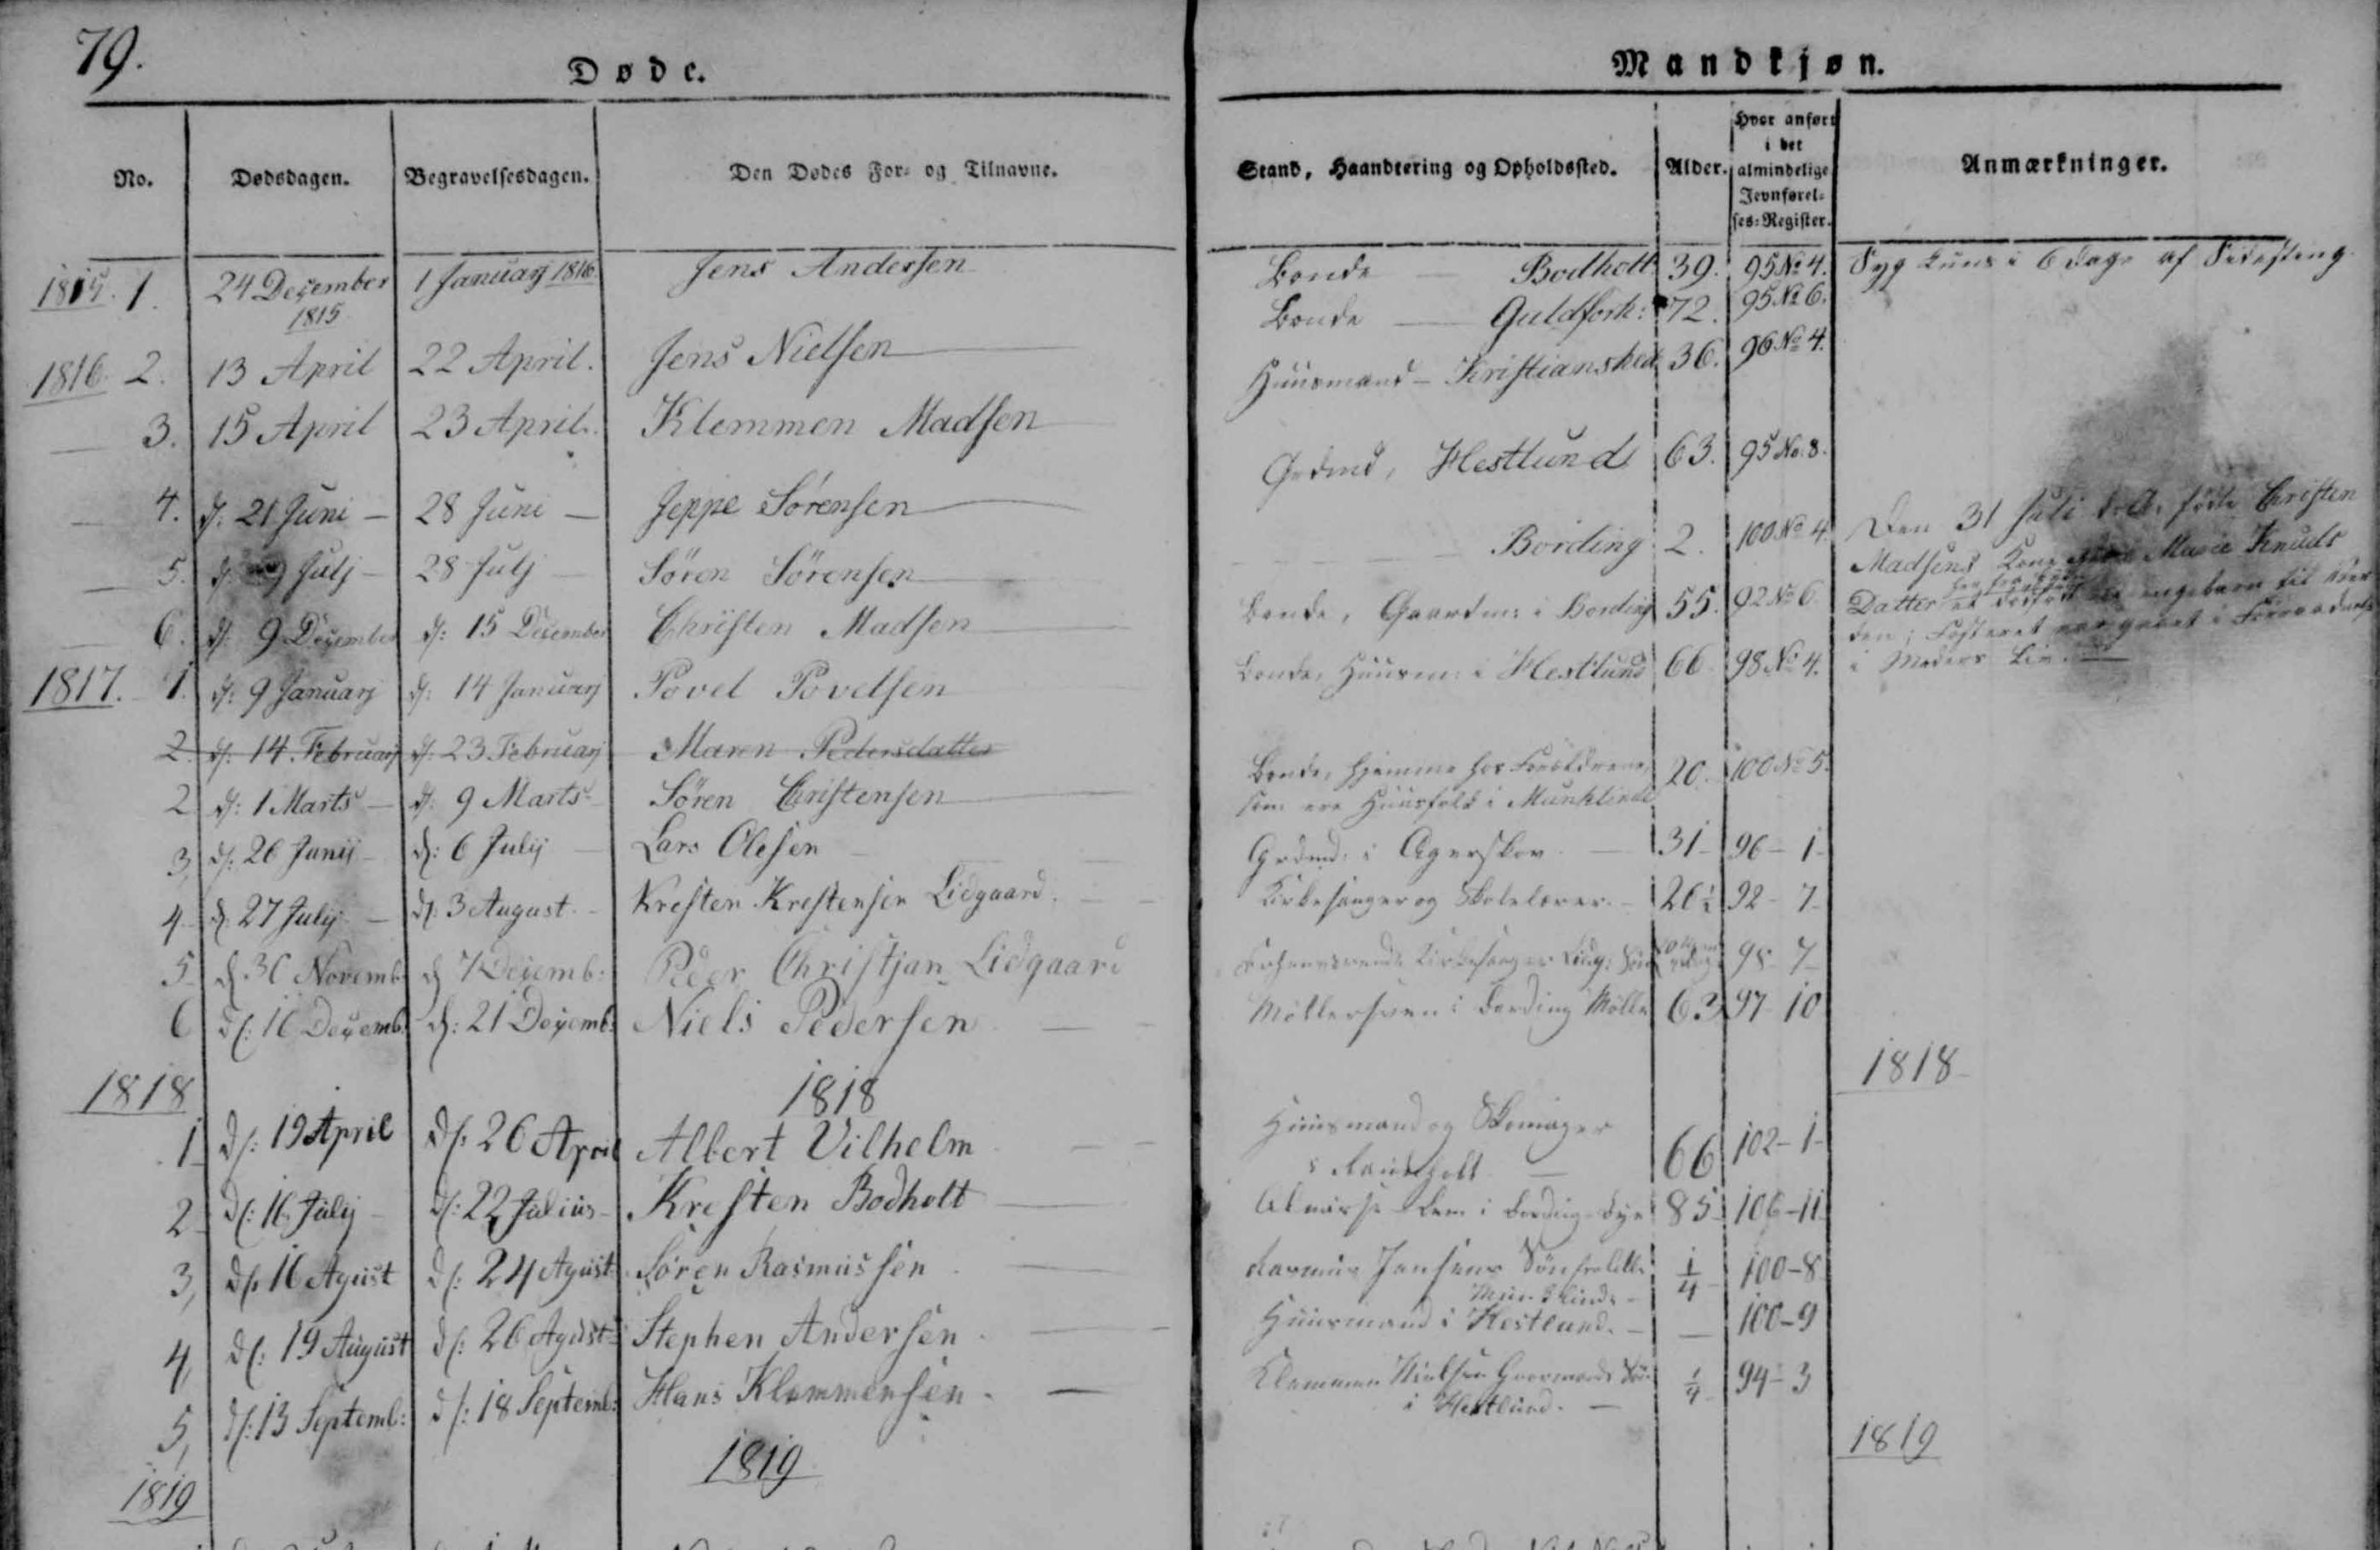 79.
Døde.
Mandkjøn.
No. Dødsdagen. Begravelsesdagen. Den Dødes For- og Tilnavne. Stand, Haandtering og Opholdssted. Alder. Hvor anført i det almindelige Jevnførel-ses-Register. Anmærkninger.
1815. 1. 24 December 1815 1 Januarj 1816 Jens Andersen Bonde Bodholt 39. 95 No 4. Syg kuns i 6 dage af Sidesting.
1816. 2. 13 April 22 April. Jens Nielsen Bonde Guldfork: 72. 95 No 6.
3. 15 April 23 April. Klemmen Madsen Huusmand Kristianshed 36. 96 No 4.
4. d: 21 Juni 28 Juni Jeppe Sørensen Grdmd, Hestlund 63. 95 No. 8.
5. Julj 28 Julj Sören Sörensen Bording 2. 100 No 4.
6. d: 9 December d: 15 December Christen Madsen Bonde, Gaardm: i Bording 55. 92 No 6.
Den 31 Juli födte Christen
Madsens Kone Marie Knuds
Datter et
i Moders Liv.
1817. 1. d: 9 Januarj d: 14 Januarj Povel Povelsen Bonde, Huusm: i Hestlund 66. 98 No 4.
2. d: 14. Februarj d: 23 Februarj Maren Pedersdatter
2 d: 1 Marts d: 9 Marts Sören Christensen Bonde, hjemme hos Forældrene, som ere Huusfolk i Munklinde 20. 100 No 5.
3, d: 26 Junij d: 6 Julij Lars Olesen Grdmd: i Agerskov 31 96 - 1
4 d: 27 Julij d: 3 August Kresten Krestensen Lidgaard. Kirkesanger og Skolelærer 26½ 92 - 7
5 d 30 Novemb: d 7 Decemb: Peder Christjan Lidgaard Kirkesanger Lidg: Søn 98 - 7
6 d: 16 Decemb: d: 21 Decemb: Niels Pedersen Möllersven i Bording Mølle 63 97 - 10
1818 1818 1818
1 d: 19 April d: 26 April Albert Vilhelm Huusmand og Skomager 66 102 - 1
2 d: 16 Julij d: 22 Julius Kresten Bodholt Almisse Lem i Bording Bye 85 106 - 11
3, d: 16 Agust d: 24 Agust Sören Rasmussen Rasmus Jensens Søn Munklinde ¼ 100 - 8
4, d: 19 August d: 26 Agust Stephen Andersen Huusmand i Hestlund. — 100 - 9
5, d: 13 Septemb: d: 18 Septemb: Hans Klemmensen Klemmen Nielsen Søn i Hestlund. ¼ 94 - 3
1819 1819 1819